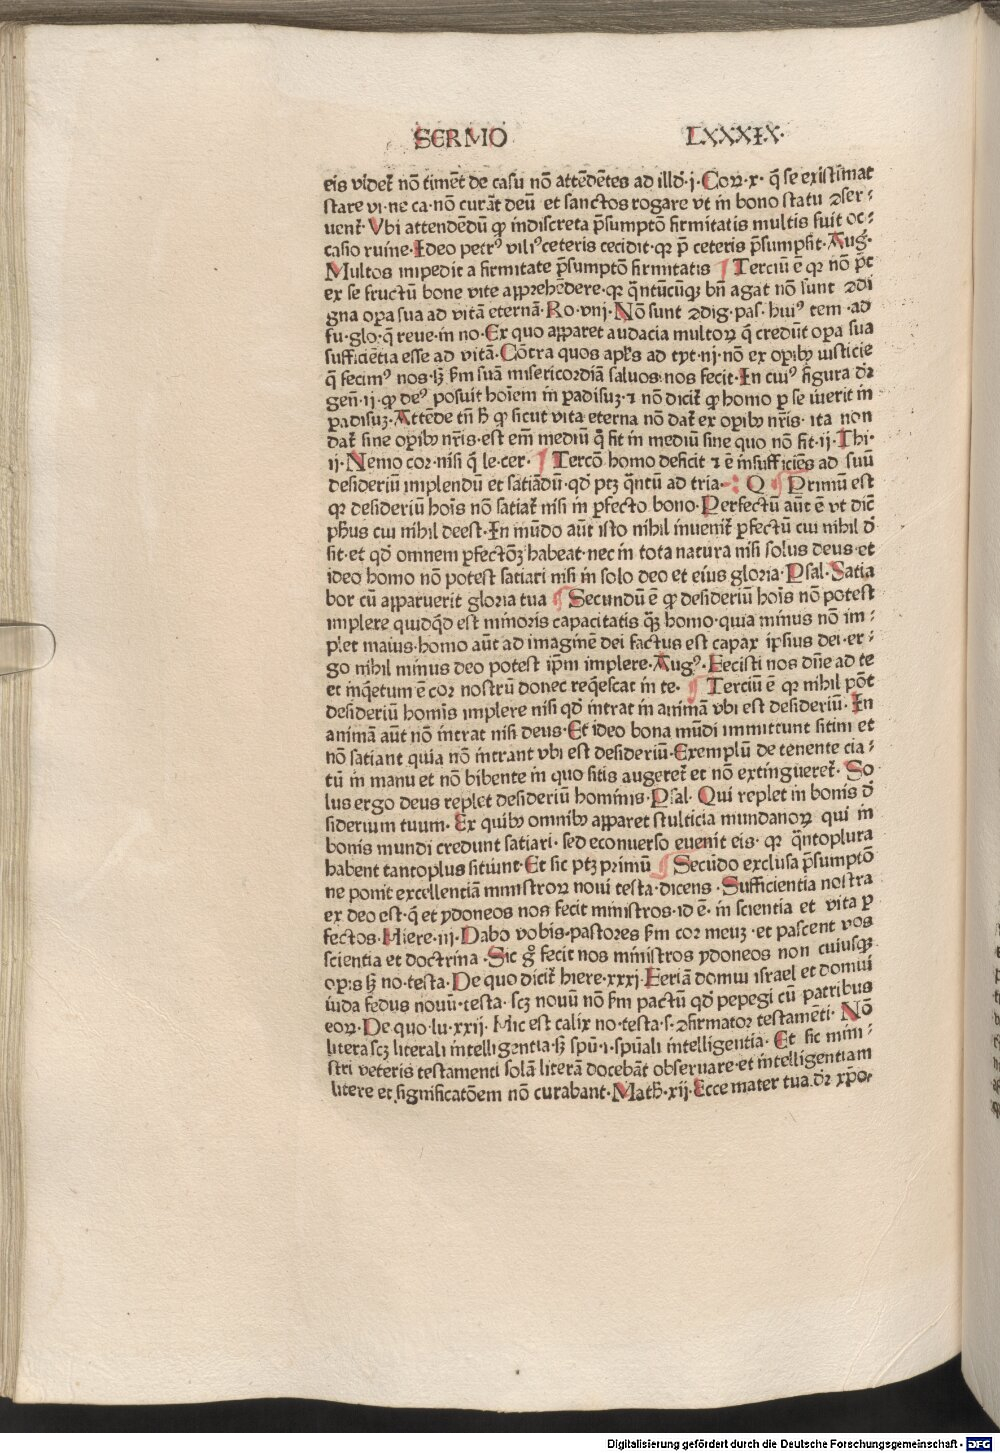 SERMO LXXXIX·
eis videt᷑ nō timēt de casu nō attēdētes ad illd᷒·j·Coꝝ·x· q̄ se existimat
stare vi·ne ca·nō curāt deū et sanctos rogare vt in bono statu ꝯser⸗
uent᷑·Vbi attendēdū ꝙ indiscreta p̄sumptō firmitatis multis fuit oc⸗
casio ruine·Ideo petrꝰ viliꝰ ceteris cecidit·qꝛ p̄ ceteris p̄sumpsit·Aug̃·
Multos impedit a firmitate p̄sumptō firmitatis ¶ Terciū ē qꝛ nō pñt
ex se fructū bone vite apprehēdere·qꝛ q̄ntūcūqꝫ bn̄ agat nō sunt ꝯdi
gna oꝑa sua ad vitā eternā·Ro·viij·Nō sunt ꝯdig·pas·huiꝰ tem·ad
fu·glo·q̄ reue·in no·Ex quo apparet audacia multoꝝ q̄ credūt oꝑa sua
sufficiētia esse ad vitā·Cōtra quos apl̄s ad tyt·iij·nō ex oꝑibꝫ iusticie
q̄ fecimꝰ nos·sꝫ s̄m suā misericordiā saluos nos fecit·In cuiꝰ figura dr̄
gen̄·ij·ꝙ deꝰ posuit hoīem in ꝑadisuꝫ·⁊ nō dicit᷑ ꝙ homo ꝑ se iuerit in
ꝑadisuꝫ·Attēde tn̄ h̄ ꝙ sicut vita eterna nō dat᷑ ex oꝑibꝫ nr̄is·ita non
dat᷑ sine oꝑibꝫ nr̄is·est em̄ mediū q̄ fit in mediū sine quo nō fit·ij·Thi·
ij·Nemo cor·nisi q̄ le·cer· ¶ Tercō homo deficit ⁊ ē insufficiēs ad suū
desideriū implendū et satiādū·qd᷒ ptꝫ q̄ntū ad tria· Q ¶ Primū est
qꝛ desideriū hoīs nō satiat᷑ nisi in ꝑfecto bono·Perfectū aūt ē vt dic̄
ph̄us cui nihil deest·In mūdo aūt isto nihil inuenit᷑ ꝑfectū cui nihil d̄
sit·et qd᷒ omnem ꝑfectōꝫ habeat·nec in tota natura nisi solus deus·et
ideo homo nō potest satiari nisi in solo deo et eius gloria·Psal·Satia
bor cū apparuerit gloria tua ¶ Secundū ē ꝙ desideriū hoīs nō potest
implere quidq̄d est minoris capacitatis q̄ꝫ homo·quia minus nō im⸗
plet maius·homo aūt ad imaginē dei factus est capax ipsius dei·er⸗
go nihil minus deo potest ip̄m implere·Augꝰ·Fecisti nos dn̄e ad te
et inq̄etum ē cor nostrū donec req̄escat in te· ¶ Terciū ē qꝛ nihil pōt
desideriū hominis implere nisi qd᷒ intrat in animā vbi est desideriū·In
animā aūt nō intrat nisi deus·Et ideo bona mūdi immittunt sitim et
nō satiant quia nō intrant vbi est desideriū·Exemplū de tenente cia⸗
tū in manu et nō bibente in quo sitis augeret᷑ et nō extingueret᷑·So
lus ergo deus replet desideriū hominis·Psal·Qui replet in bonis d̄
siderium tuum·Ex quibꝫ omnibꝫ apparet stulticia mundanoꝝ qui in
bonis mundi credunt satiari·sed econuerso euenit eis·qꝛ q̄ntoplura
habent tantoplus sitiunt·Et sic ptꝫ primū ¶ Secūdo exclusa p̄sumptō
ne ponit excellentiā ministroꝝ noui testa·dicens·Sufficientia nostra
ex deo est·q̄ et ydoneos nos fecit ministros·id ē·in scientia et vita ꝑ
fectos·Hiere·iij·Dabo vobis pastores s̄m cor meuꝫ·et pascent vos
scientia et doctrina·Sic g̊ fecit nos ministros ydoneos non cuiusqꝫ
oꝑis sꝫ no·testa·De quo dicit᷑ hiere·xxxj·Feriā domui israel et domui
iuda fedus nouū·testa·scꝫ nouū nō s̄m pactū qd᷒ pepegi cū patribus
eoꝝ·De quo·lu·xxij·Hic est calix no·testa·s·ꝯfirmatoꝛ testamēti·Nō
litera scꝫ literali intelligentia·sꝫ spū·i·spūali intelligentia·Et sic mini⸗
stri veteris testamenti solā literā docebāt obseruare·et intelligentiam
litere et significatōem nō curabant·Math·xij·Ecce mater tua·dr̄ xp̄o·